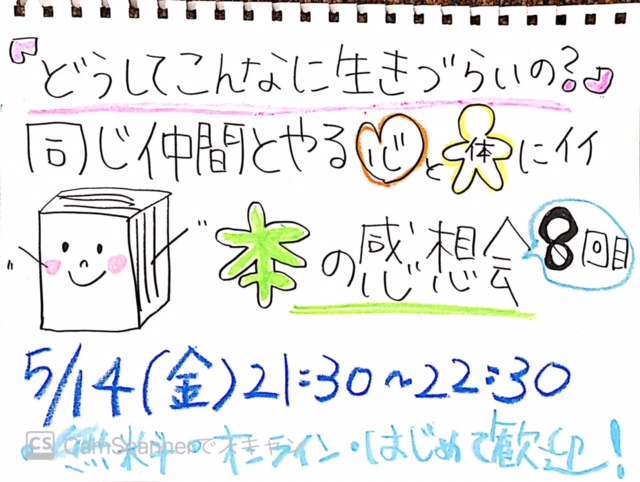 『どうしてこんなに生きづらいの?』
同じ仲間とやる心と体にイイ
"本"の感想会 8回目
5/14(金)21:30~22:30
・無料・オンライン・はじめて歓迎!
CS CamScannerでスキャン